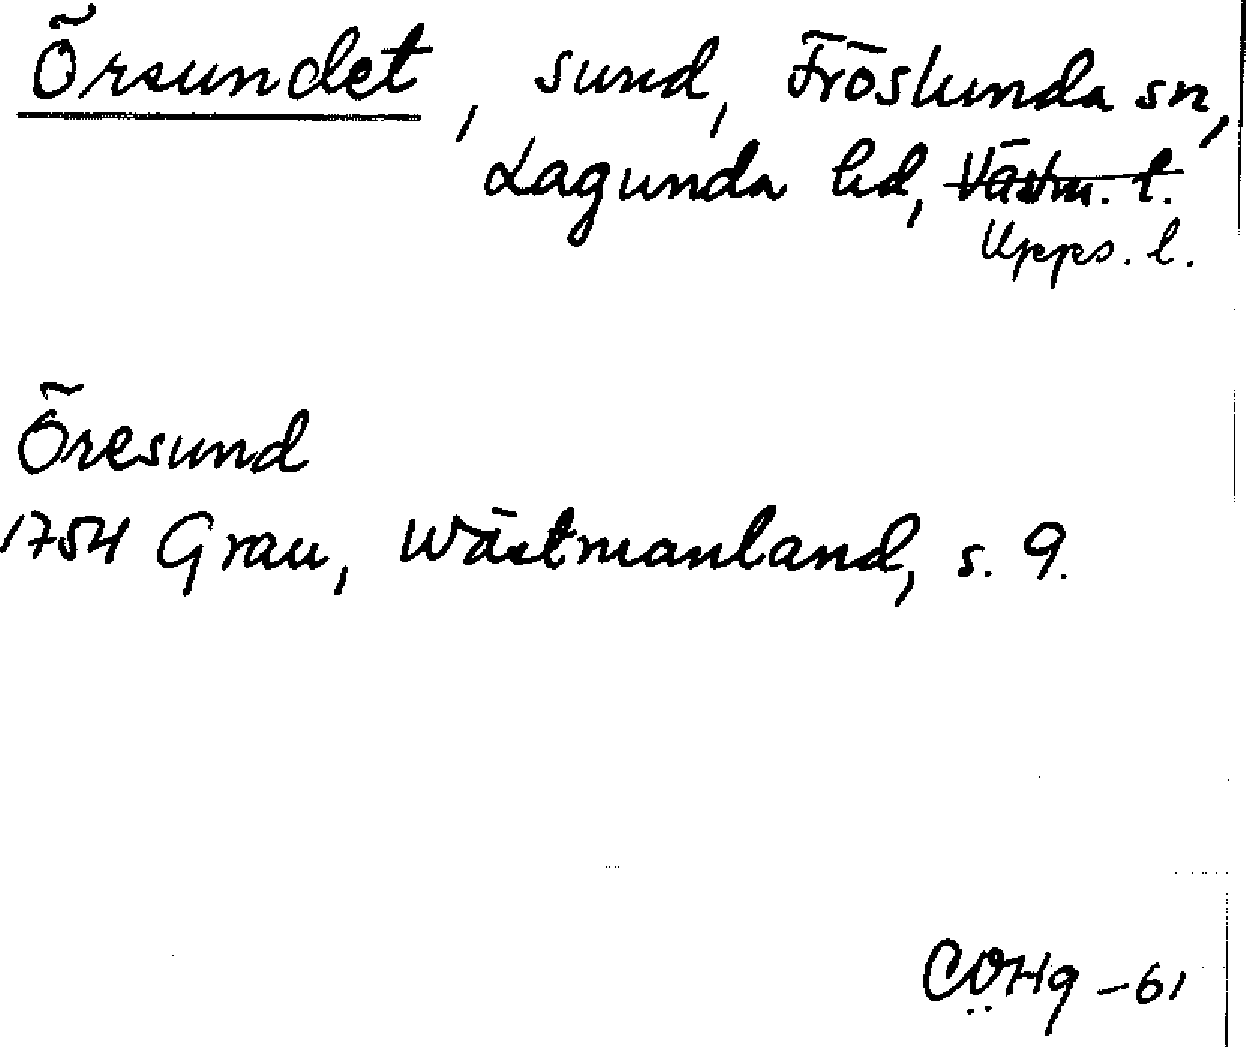 Örsundet, sund, Fröslunda sn,
Lagunda hd, Västm. l.
Upps. l.
Öresund
1754 Grau, Wästmanland, s. 9.
CÖHg -61